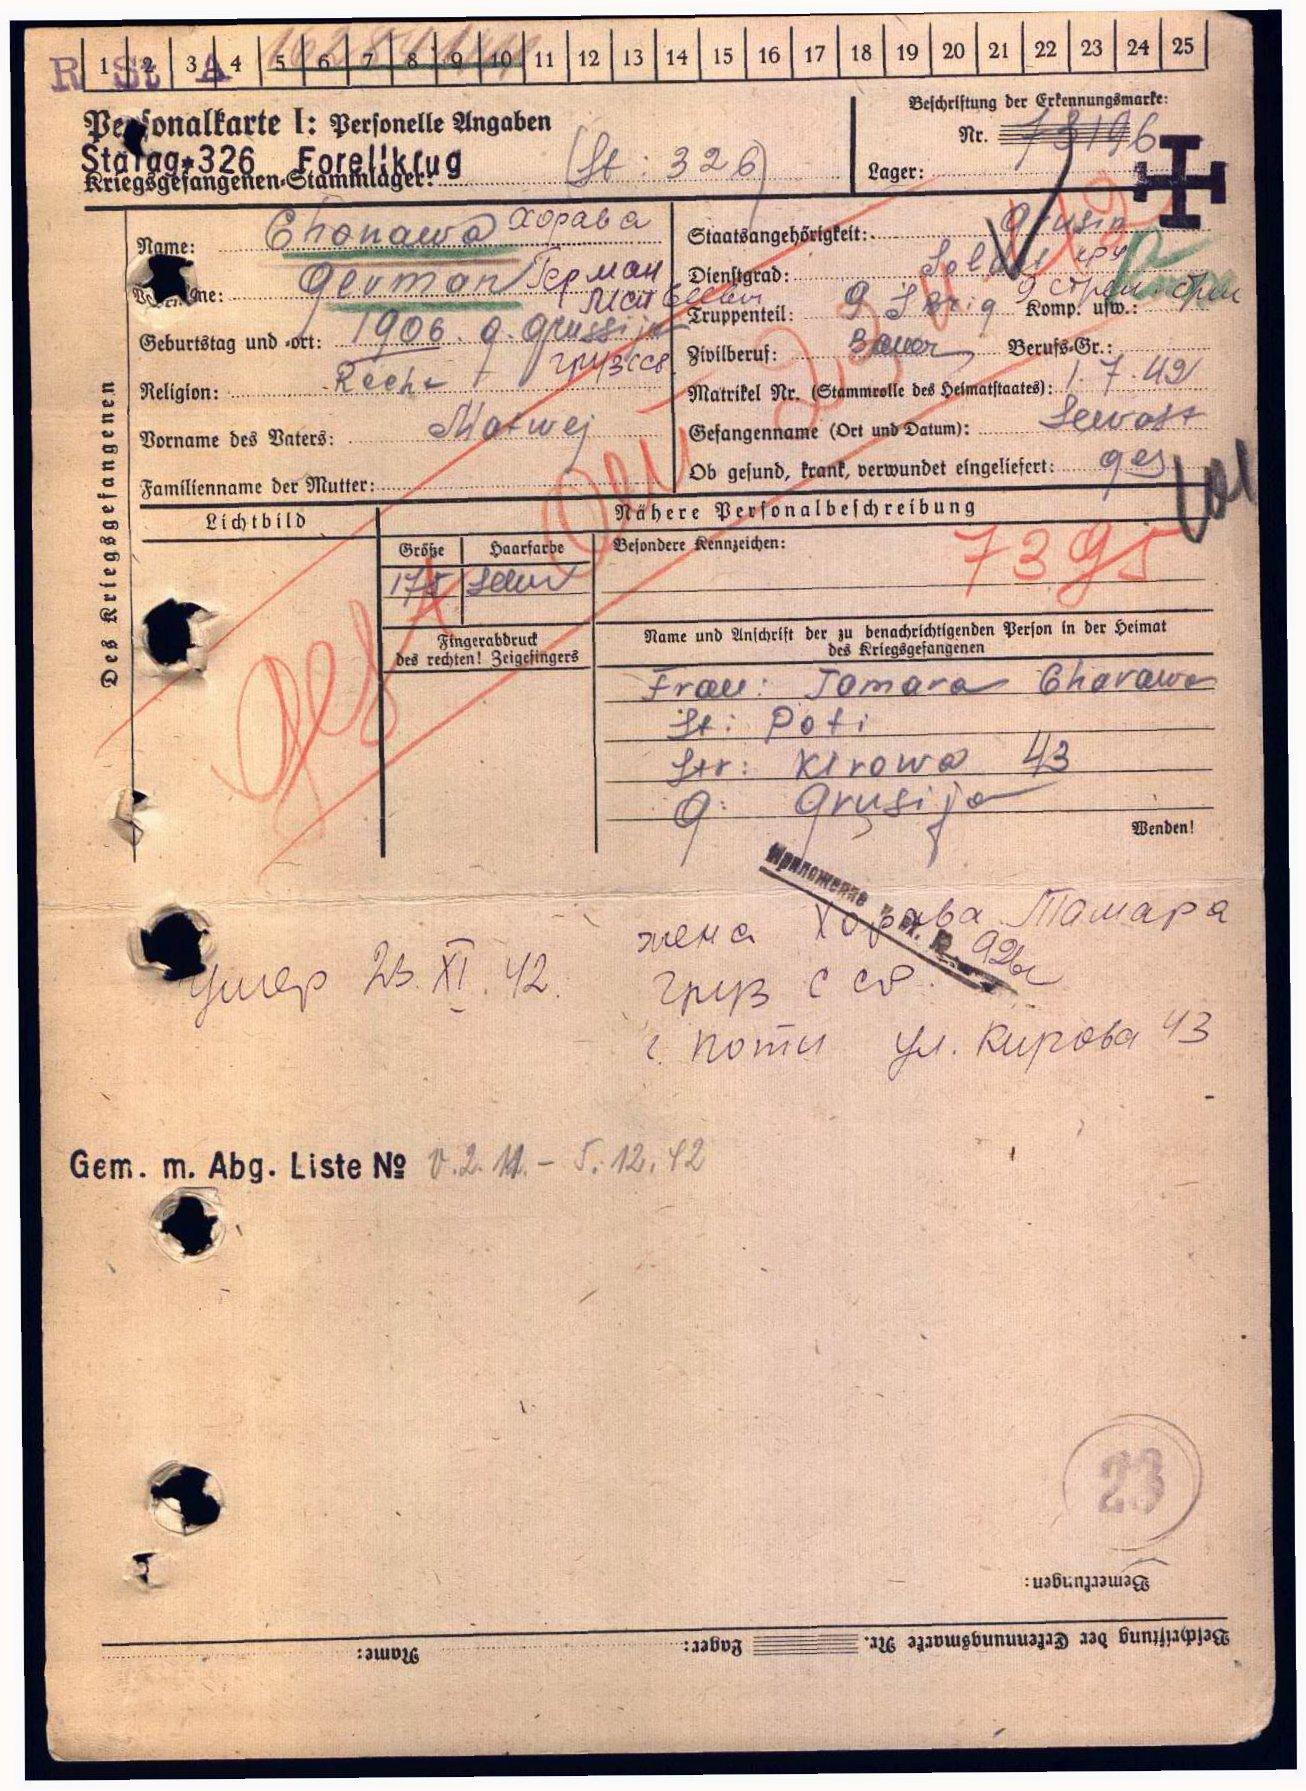 R St A
1 2 3 4 5 6 7 8 9 10 11 12 13 14 15 16 17 18 19 20 21 22 23 24 25
Personalkarte I: Personelle Angaben
Stalag 326 Forellkrug
Kriegsgefangenen-Stammlager: (St: 326)
Beschriftung der Erkennungsmarke:
Nr. 73196
Lager:
Des Kriegsgefangenen
Name: Chonawa Хорава
Vorname: German Герман
Матвеевич
Geburtstag und -ort: 1906. g. Grussija
груз ССР.
Religion:
Vorname des Vaters: Matwej
Familienname der Mutter:
Staatsangehörigkeit: Grusin
Dienstgrad: Soldat
Truppenteil: 9 S Brig Komp. usw.:
9 стрел
Zivilberuf: Bauer Berufs-Gr.:
Matrikel Nr. (Stammrolle des Heimatstaates): 1. 7. 42
Gefangenname (Ort und Datum): Sewast
Ob gesund, krank, verwundet eingeliefert: ges
Lichtbild
Nähere Personalbeschreibung
Größe Haarfarbe Besondere Kennzeichen:
175 7395
Fingerabdruck
des rechten! Zeigefingers
Name und Anschrift der zu benachrichtigenden Person in der Heimat
des Kriegsgefangenen
Frau: Tamara Charawa
St: Poti
Str: Kirowa 43
G: Grusija
Wenden!
Приложение
умер 23. XI. 42.
жена Хорава Тамара
груз ССР.
г. Поти ул. Кирова 43
Gem. m. Abg. Liste № v. 2. 11. – 5. 12. 42
23
Bemerkungen:
Beschriftung der Erkennungsmarke Nr. Lager: Name: